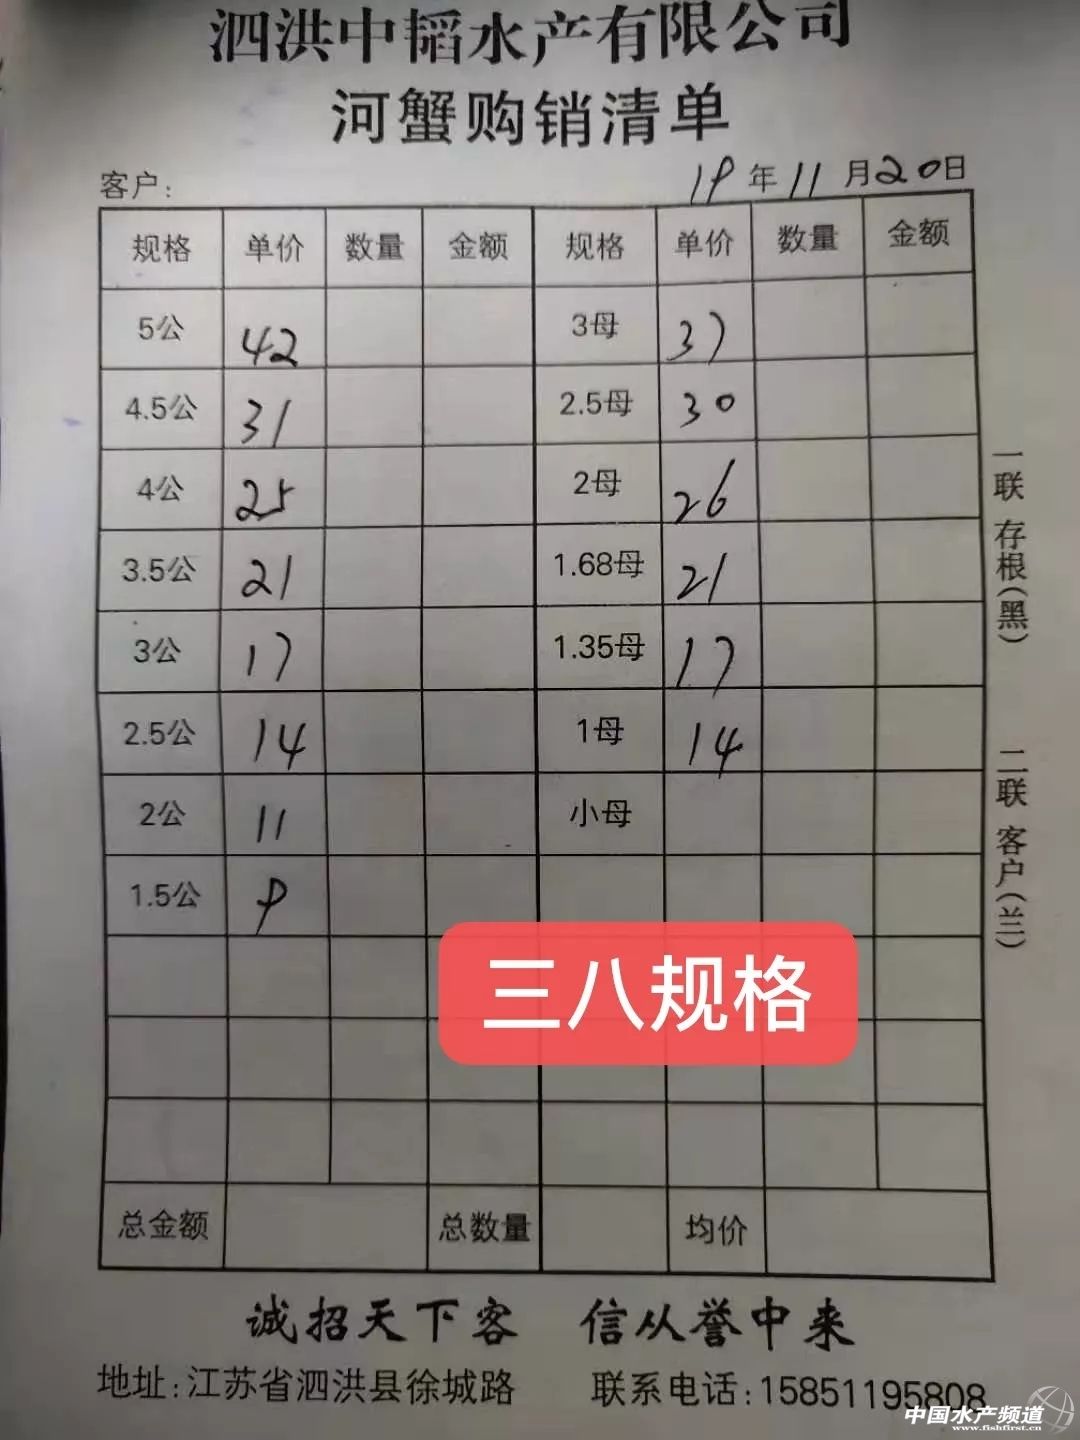 泗洪中韬水产有限公司
河蟹购销清单
客户: 19年11月20日
规格 单价 数量 金额 规格 单价 数量 金额
5公 42 3母 37
4.5公 31 2.5母 30
4公 25 2母 26
3.5公 21 1.68母 21
3公 17 1.35母 17
2.5公 14 1母 14
2公 11 小母
1.5公 9
三八规格
总金额 总数量 均价
一联 存根(黑) 二联 客户(兰)
诚招天下客 信从誉中来
地址:江苏省泗洪县徐城路 联系电话:15851195808
中国水产频道
www.fishfirst.cn